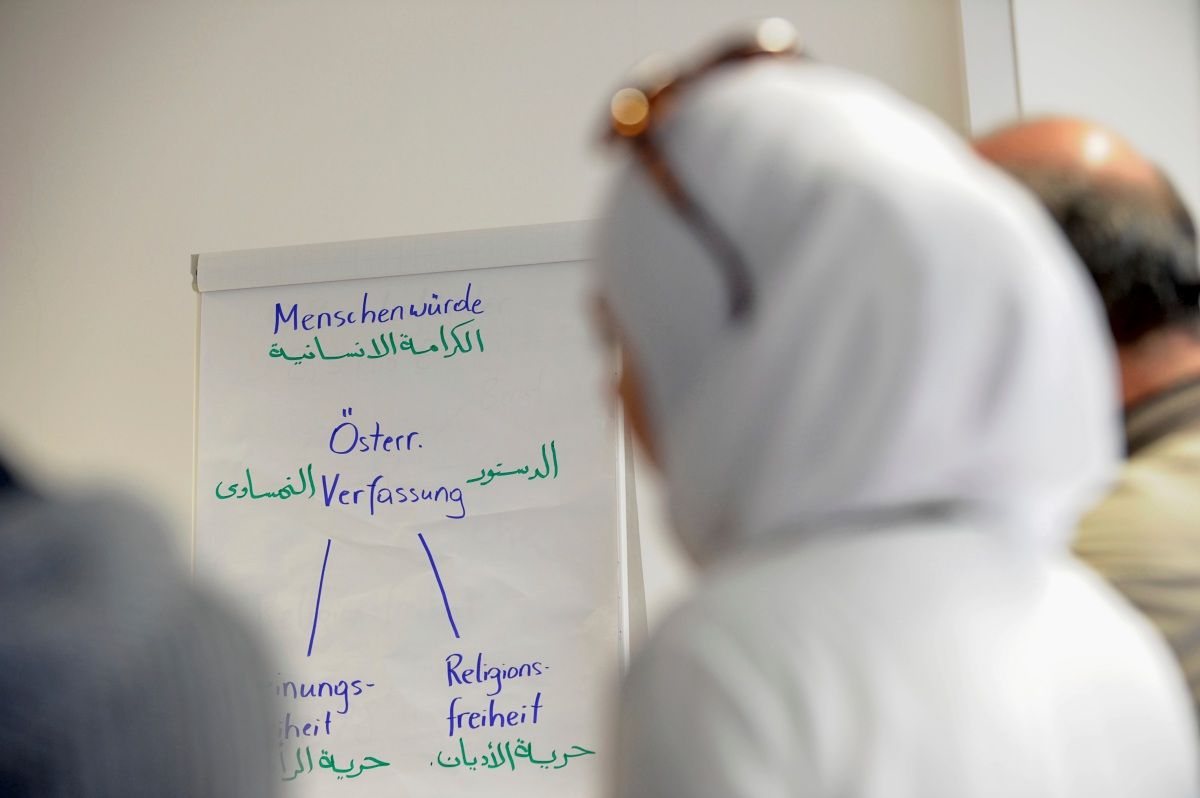 Menschenwürde
الكرامة الانسانية
Österr.
الدستور
Verfassung
النمساوى
inungs-
iheit
حرية الرأ
Religions-
freiheit
حرية الأديان.